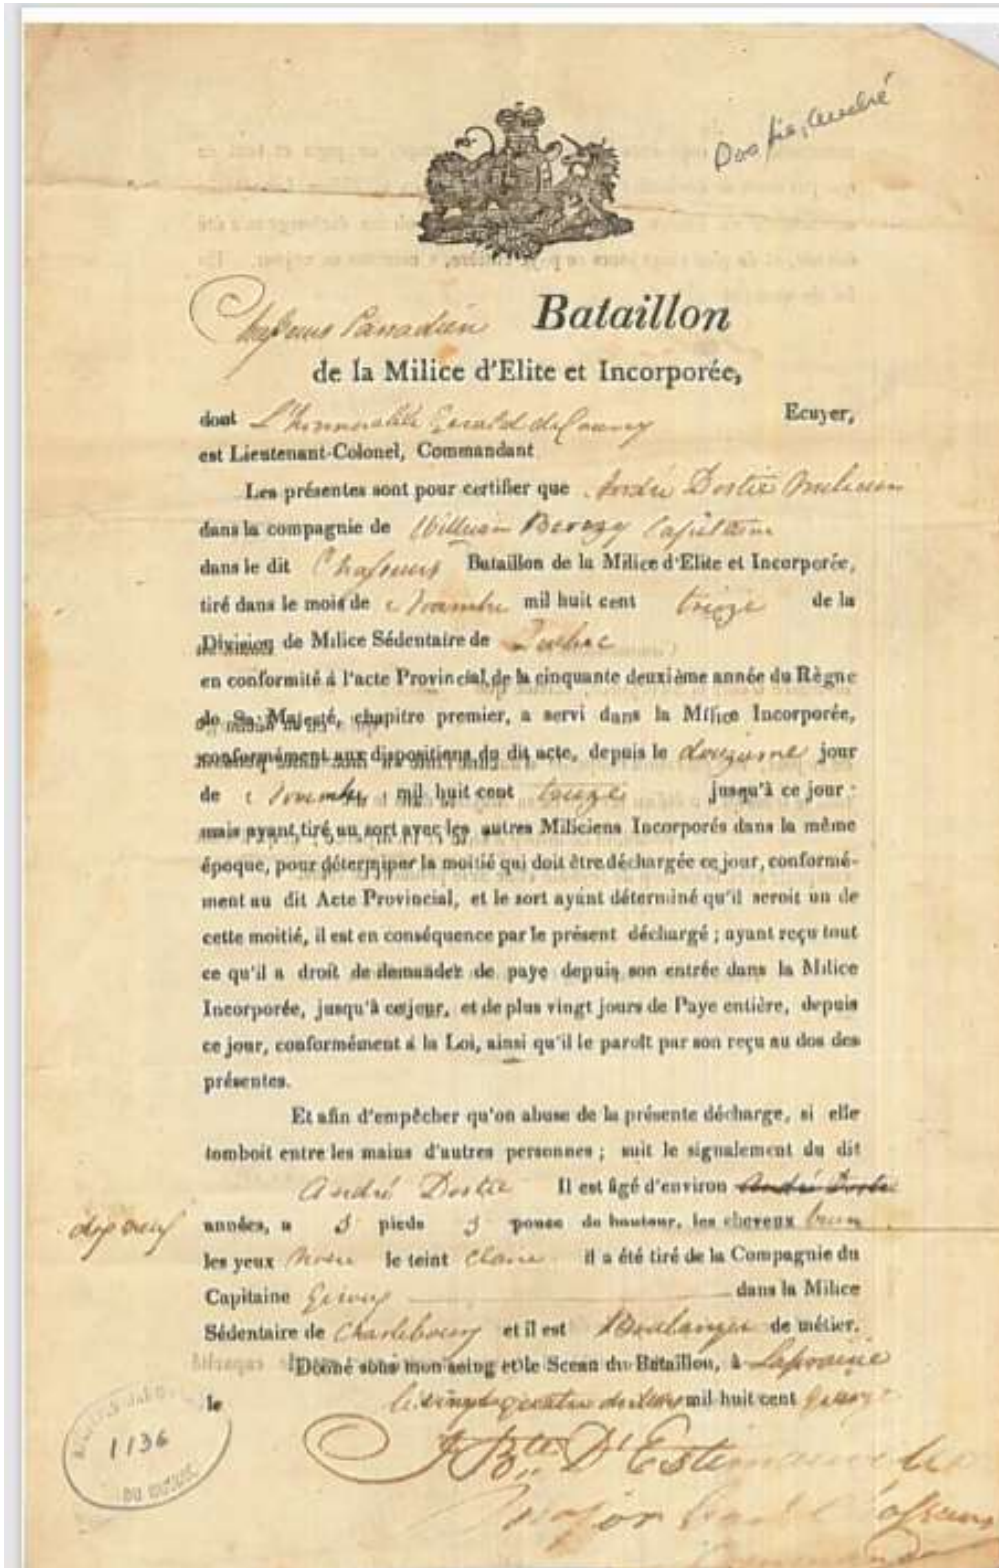 Dostie, André
Chasseurs Canadien Bataillon
de la Milice d'Elite et Incorporée,
dont L'Honnorable Gerald de Courcy Ecuyer,
est Lieutenant-Colonel, Commandant
Les présentes sont pour certifier que André Dostie Milicien
dans la compagnie de William Berczy Capitaine
dans le dit Chasseurs Bataillon de la Milice d'Elite et Incorporée,
tiré dans le mois de Novembre mil huit cent treize de la
Division de Milice Sédentaire de Quebec
en conformité á l'acte Provincial, de la cinquante deuxième année du Règne
de Sa Majesté, chapitre premier, a servi dans la Milice Incorporée,
conformément aux dispositions du dit acte, depuis le douzieme jour
de Novembre mil huit cent treize jusqu'à ce jour :
mais ayant tiré au sort avec les autres Miliciens Incorporés dans la même
époque, pour déterminer la moitié qui doit être déchargée ce jour, conformé-
ment au dit Acte Provincial, et le sort ayant déterminé qu'il seroit un de
cette moitié, il est en conséquence par le présent déchargé ; ayant reçu tout
ce qu'il a droit de demander de paye depuis son entrée dans la Milice
Incorporée, jusqu'à ce jour, et de plus vingt jours de Paye entière, depuis
ce jour, conformément á la Loi, ainsi qu'il le paroît par son reçu au dos des
présentes.
Et afin d'empêcher qu'on abuse de la présente décharge, si elle
tomboit entre les mains d'autres personnes ; suit le signalement du dit
André Dostie Il est âgé d'environ André Dostie
dix neuf années, a 5 pieds 3 pouce de hauteur, les cheveux brun
les yeux Noir le teint Claire il a été tiré de la Compagnie du
Capitaine Giroux dans la Milice
Sédentaire de Charlebourg et il est Boulanger de métier.
Donné sous mon seing et le Sceau du Bataillon, à Laprairie
le vingt quatre mil huit cent
1136
DU
J Bte D'Estimauville
Major